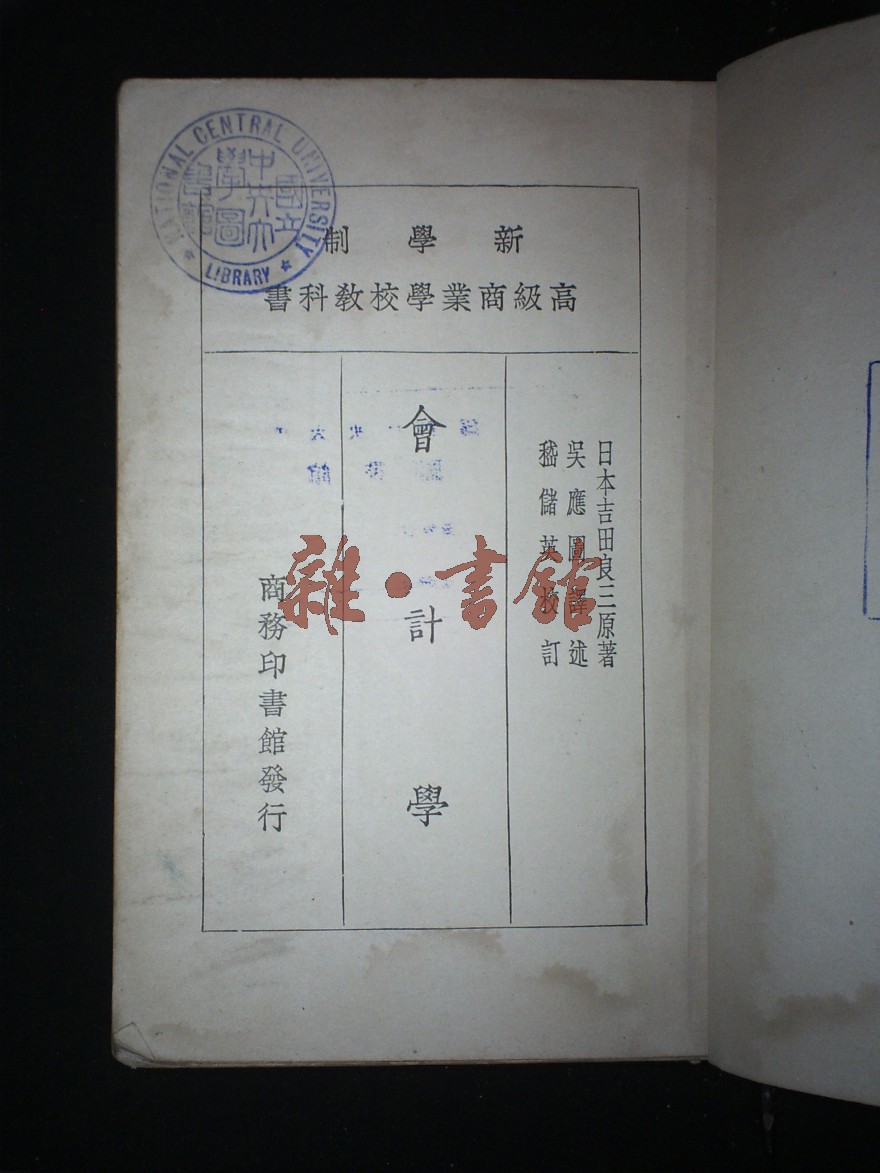 新學制
高級商業學校教科書
日本吉田良三原著
吳應圖譯述
嵇儲英校訂
會計學
商務印書館發行
NATIONAL CENTRAL UNIVERSITY
LIBRARY
國立
中央大
學圖
書館
雜·書館